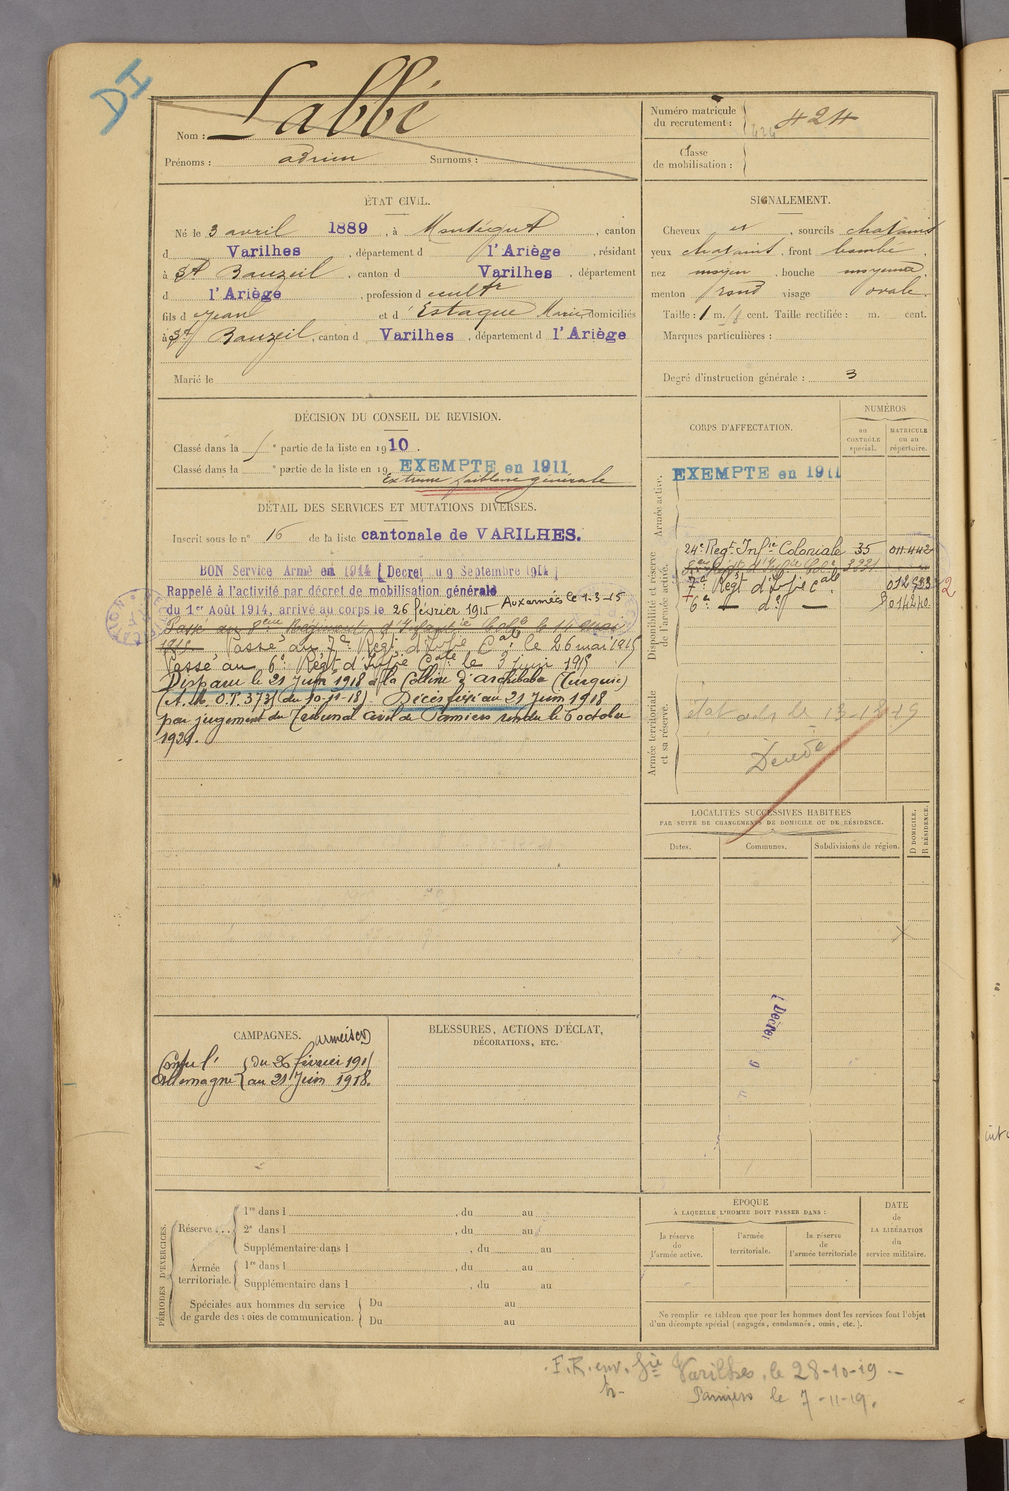 DI
Nom : Labbé
Prénoms : adrien Surnoms :
Numéro matricule
du recrutement : 424 424
Classe
de mobilisation :
ÉTAT CIVIL.
Né le 3 avril 1889, à Montégut, canton
d Varilhes, département d l'Ariège, résidant
à St Bauzeil, canton d Varilhes, département
d l'Ariège, profession d cultr
fils d Jean et d Estaque Marie, domiciliés
à St Bauzeil, canton d Varilhes, département d l'Ariège
Marié le
SIGNALEMENT.
Cheveux et, sourcils chatains
yeux chatains, front bombé
nez moyen, bouche moyenne
menton rond visage ovale.
Taille : 1 m. cent. Taille rectifiée : m. cent.
Marques particulières :
Degré d'instruction générale : 3
DÉCISION DU CONSEIL DE REVISION.
Classé dans la e partie de la liste en 1910.
Classé dans la e partie de la liste en 19 EXEMPTÉ en 1911
Extreme faiblesse générale
DÉTAIL DES SERVICES ET MUTATIONS DIVERSES.
Inscrit sous le n° 16 de la liste cantonale de VARILHES.
BON Service Armé en 1914 (Decret du 9 Septembre 1914)
Rappelé à l'activité par décret de mobilisation générale
du 1er Août 1914, arrivé au corps le 26 février 1915 Aux armées le 1-3-15
Passé au 8eme Régiment d'Infantie Colle le 14 mai
1915. Passé au 7e Régt d'Infie Cale le 26 mai 1915
Passé au 6e Régt d'Infie Cale le 3 juin 1915
Disparu le 21 Juin 1918 à la Colline d'archibaba (Turquie)
Décès fixé au 21 Juin 1918
par jugement du Tribunal Civil de Pamiers rendu le 6 octobre
1921.
CORPS D'AFFECTATION.
NUMÉROS
au
CONTRÔLE
spécial.
MATRICULE
ou au
répertoire.
Armée active.
EXEMPTE en 1911
Disponibilité et réserve
de l'armée active.
24e Regt Infie Coloniale 35 011.442
7e Régt d'Infie Cale
6e — do —
Armée territoriale
et sa réserve.
13-12-19
LOCALITÉS SUCCESSIVES HABITÉES
PAR SUITE DE CHANGEMENTS DE DOMICILE OU DE RÉSIDENCE.
Dates.
Communes.
Subdivisions de région.
D DOMICILE.
R RÉSIDENCE.
(Décret
9
CAMPAGNES.
armées
Contre l' du 26 février 1915
Allemagne au 21 Juin 1918.
BLESSURES, ACTIONS D'ÉCLAT,
DÉCORATIONS, ETC.
PÉRIODES D'EXERCICES.
Réserve . . .
1re dans l , du au
2e dans l , du au
Supplémentaire dans l , du au
Armée
territoriale.
1re dans l , du au
Supplémentaire dans l , du au
Spéciales aux hommes du service
de garde des voies de communication.
Du au
Du au
ÉPOQUE
À LAQUELLE L'HOMME DOIT PASSER DANS :
la réserve
de
l'armée active.
l'armée
territoriale.
la réserve
de
l'armée territoriale
DATE
de
LA LIBÉRATION
du
service militaire.
Ne remplir ce tableau que pour les hommes dont les services font l'objet
d'un décompte spécial (engagés, condamnés, omis, etc.).
F.R. env. Gie Varilhes, le 28-10-19
Pamiers le 7-11-19.